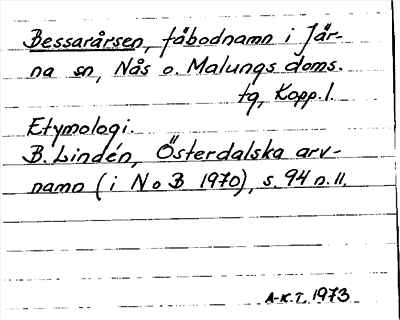 Bessarårsen, fäbodnamn i Jär-
na sn, Nås o. Malungs doms.
tg, Kopp. l.
Etymologi.
B. Lindén, Österdalska arv-
namn (i NoB 1970), s. 94 n. 11.
A-K.T. 1973